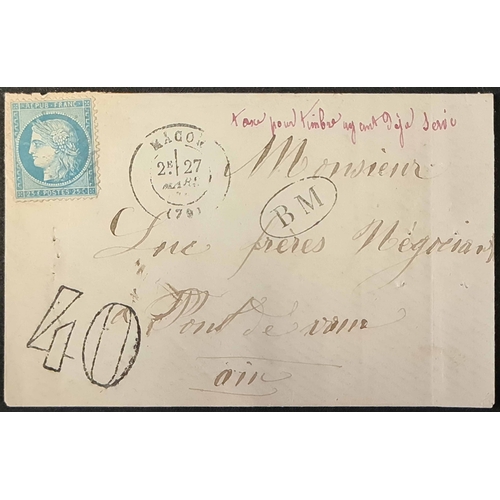 REPUB. FRANC.
25 C POSTES 25 C
taxe pour timbre ayant déja servi
MACON
2E 27
MARS
(70)
Monsieur
BM
Luc frères Négociant
à Pont de vaux
ain
40